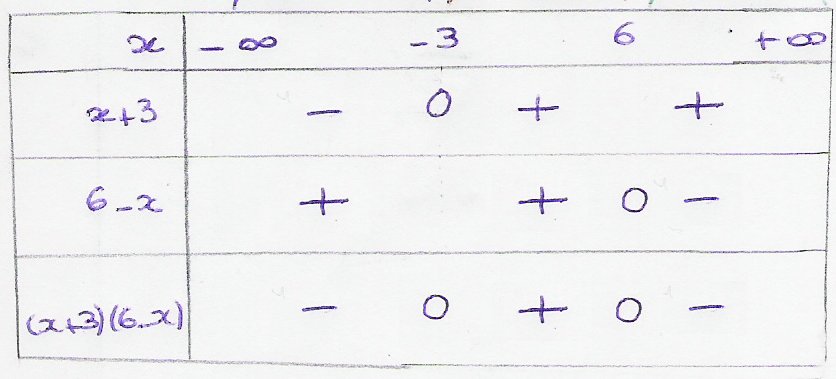 x -∞ -3 6 +∞
x+3 - 0 + +
6-x + + 0 -
(x+3)(6-x) - 0 + 0 -